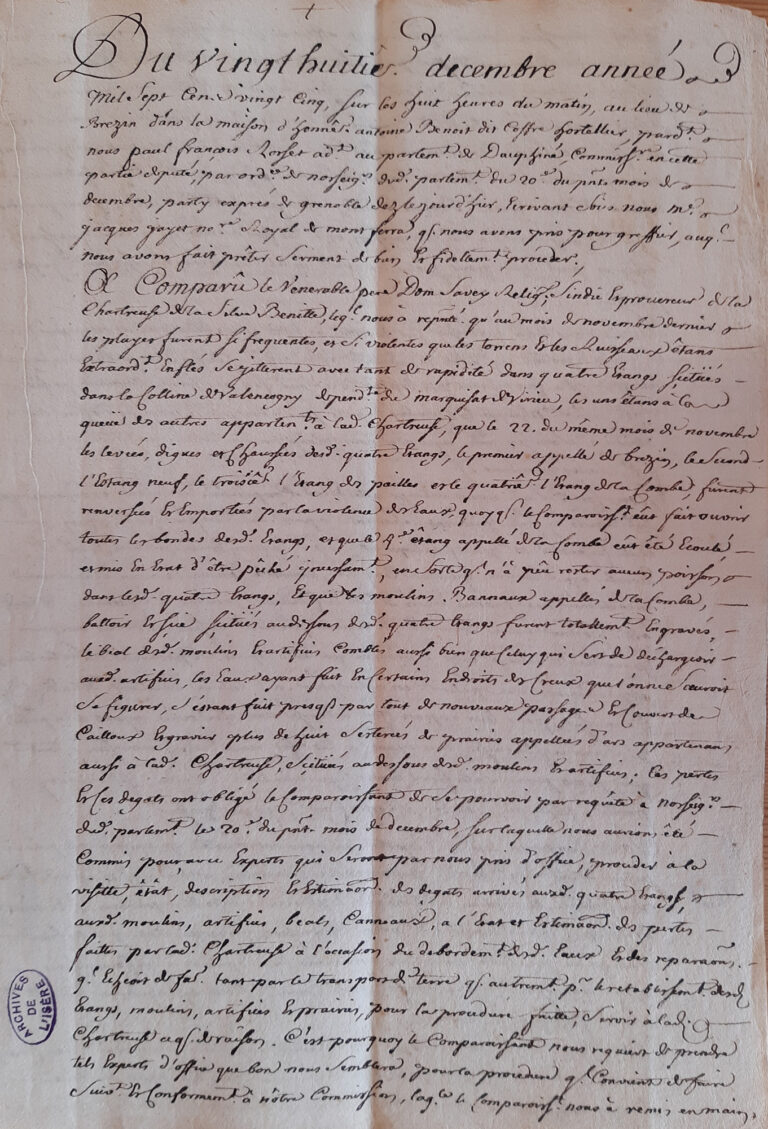 Du vingt huitie.ᵉ decembre année
Mil Sept Cent vingt Cinq, sur les huit heures du matin, au lieu de
Brezin dans la maison d'honnê.ᵗ antoine Benoit dit Coffre hostellier, pard.ᵗ
nous paul françois Rosset ad.ᵗ au parlem.ᵗ de Dauphiné Commiss.ʳᵉ en cette
partie deputé, par ord.ᶜᵉ de nosseig.ʳˢ dud. parlem.ᵗ du 20.ᵉ du pñt mois de
decembre, party exprés de grenoble dez le jourd'hier, Ecrivant sous nous m.ᵉ
jacques gayet no.ʳᵉ Royal de montferra, q. nous avons pris pour greffier, auq.ˡ
nous avons fait prêter Serment de bien Et fidellem.ᵗ proceder.
A Comparû le Venerable pere Dom Savey Relig.ˣ Sindic Et procureur de la
Chartreuse de la Silve Benitte, leq.ˡ nous a repñté qu'au mois de novembre dernier
les pluyes furent si frequentes, et si violentes que les torrens Et les Ruisseaux êtans
Extraord.ᵗ Enflés Se jetterent avec tant de rapidité dans quatre Etangs scitués
dans la Colline de Valencogny depend.ᵗᵉ du marquisat de Virieu, les uns êtans à la
queüe des autres apparten.ᵗˢ à lad. Chartreuse, que le 22. du même mois de novembre
les levées, digues et Chaussées desd. quatre Etangs, le premier appellé de brezin, le Second
l'Estang neuf, le troisiê.ᵉ l'Etang des pailles et le quatriê.ᵉ l'Etang de la Combe, furent
renversés Et Emportés par la violence des Eaux, quoy q. le Comparoiss.ᵗ eût fait ouvrir
toutes les bondes desd. Etangs, et que le 4.ᵉ êtang appellé de la Combe eût été Ecoulé
et mis En Etat d'être pêché, en Sorte q. n'a peu rester aucun poisson
dans lesd. quatre Etangs, Et que les moulins Bannaux appellés de la Combe,
battoir Et Scie scitués audessous desd. quatre Etangs furent totallem.ᵗ Engravés,
le bial desd. moulins Et artifices Comblés aussi bien que Celuy qui Sert de dechargeoir
auxd. artifices, les Eaux ayant fait En Certains Endroits des Creux que l'on ne Scauroit
Se figurer, S'étant fait presq. par tout de nouveaux passages Et Couvert de
Cailloux Et gravier plus de huit Sesterées de prairies appellées d'ars appartenans
aussi à lad. Chartreuse, Scituées audessous desd. moulins Et artifices; Ces pertes
Et Ces degats ont obligé le Comparoissant de Se pourvoir par requête à nosseig.ʳˢ
dud. parlem.ᵗ le 20.ᵉ du pñt mois de decembre, sur laquelle nous aurions été
Commis pour, avec Experts qui Seront par nous pris d'office, proceder à la
visitte, êtat, description Et Estimaõn des degats arrivés auxd. quatre Etangs,
auxd. moulins, artifices, beals, Canneaux, a l'Etat et Estimaõn des pertes
faites par lad. Chartreuse à l'occasion du debordem.ᵗ desd. Eaux Et des reparaõns
q. Echoit de fa.ʳᵉ tant par le transport de terre q. autrem.ᵗ p.ʳ le retablissem.ᵗ desd.
Etangs, moulins, artifices Et prairies, pour la procedure faitte, Servir à lad.
Chartreuse ce q. de raison. C'est pourquoy le Comparoissant nous requiert de prendre
tels Experts d'office que bon nous Semblera, pour la procedure q. Convient de faire
Suiv.ᵗ Et Conformem.ᵗ à nôtre Commission, laq.ˡˡᵉ le Comparoiss.ᵗ nous a remis en main,
ARCHIVES
DE
L'ISÈRE